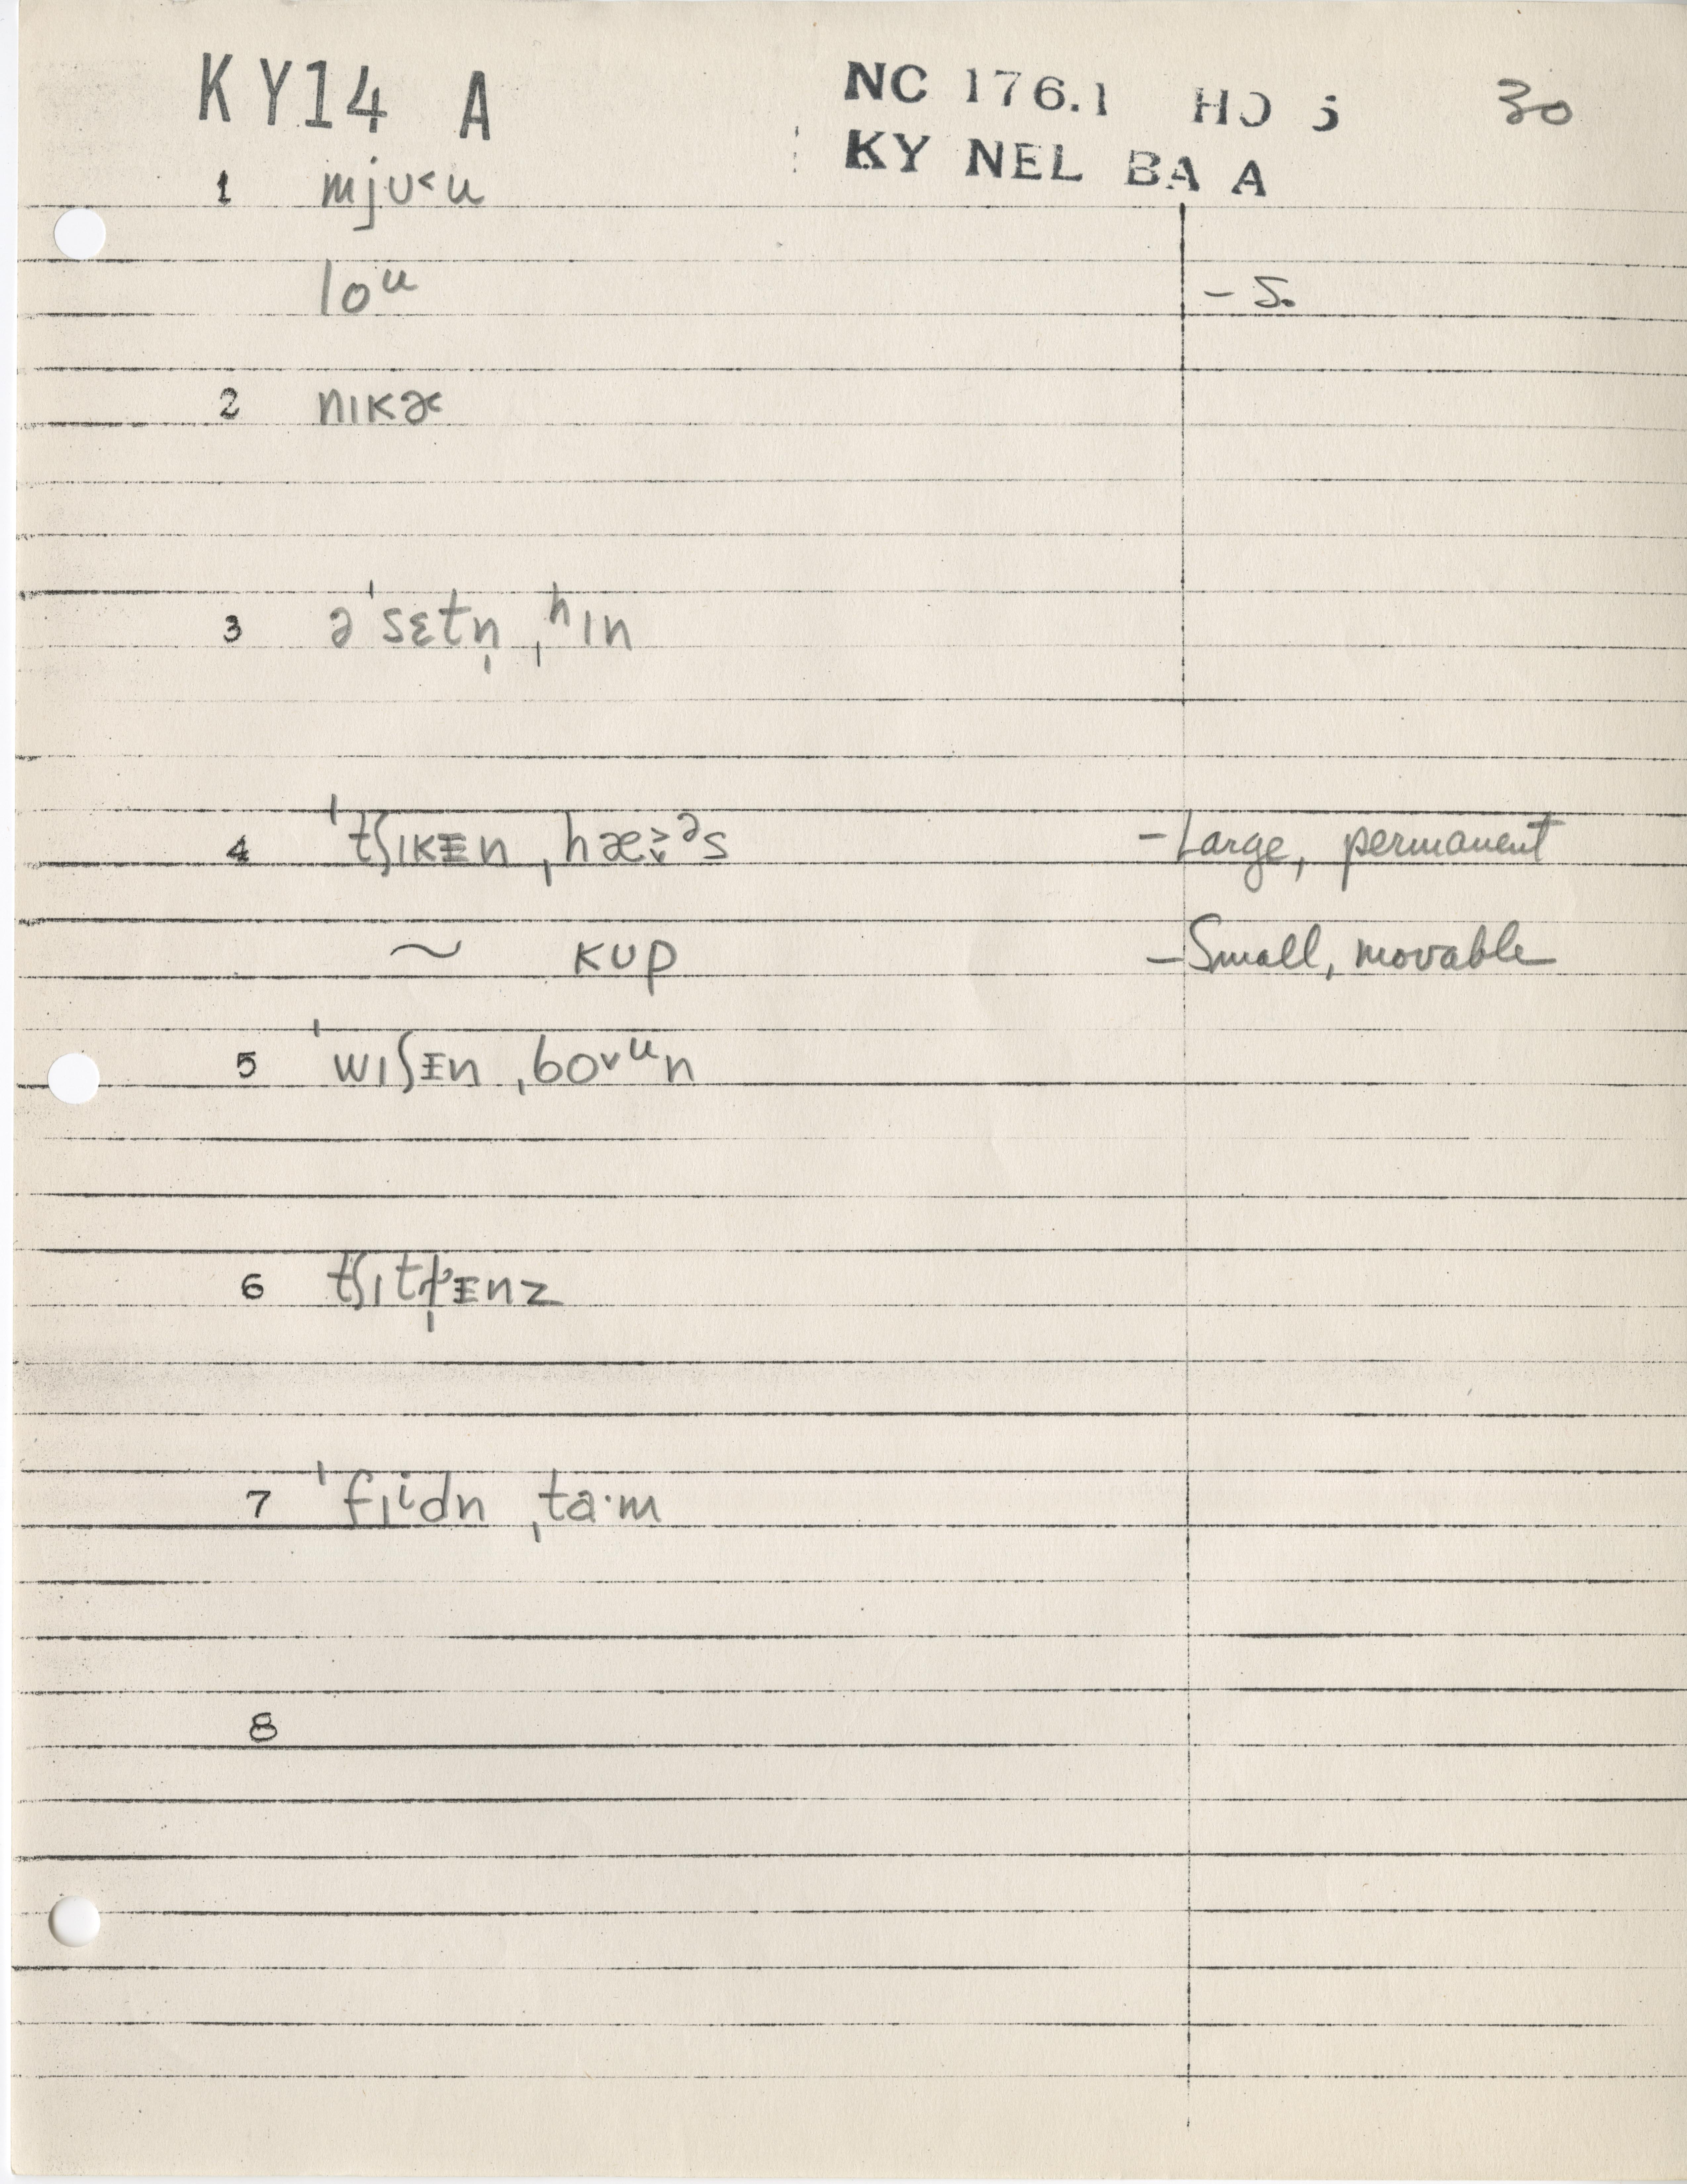 KY14 A NC 176.1 HO 5 30
KY NEL BA A
1 mjʊ˂u
loᵘ - S.
2 nɪkə˂
3 əˈsɛtn̩ ˌʰɪn
4 ˈtʃɪkᵻn ˌhæ˃˅ːᵊs - Large, permanent
~ kup - Small, movable
5 ˈwɪʃᵻn ˌbo˅ᵘn
6 tʃɪt ᵻnz
7 ˈfɪⁱdn ˌta·m
8